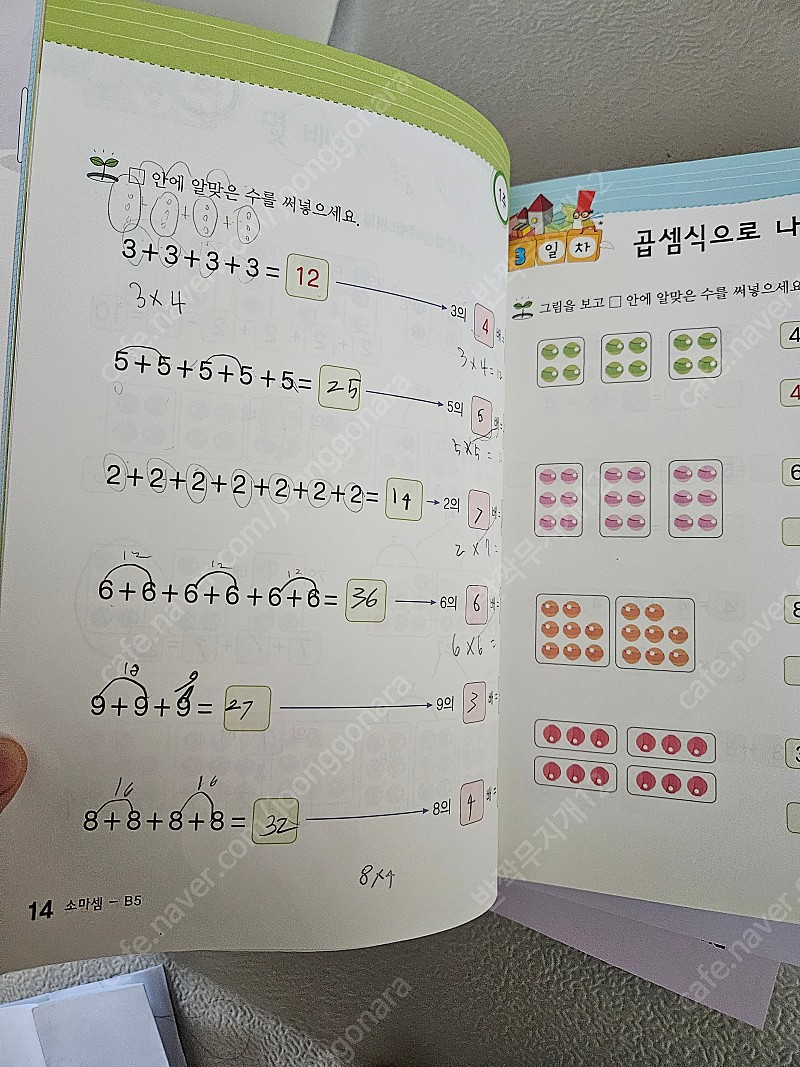 □ 안에 알맞은 수를 써넣으세요.
3+3+3+3= 12
3의 4 배=
3×4
3×4=
5+5+5+5+5= 25
5의 5 배=
5×5=
2+2+2+2+2+2+2= 14
2의 7 배=
2×7=
12 12 12
6+6+6+6+6+6= 36
6의 6 배=
6×6=
18
9+9+9= 27
9의 3 배=
16 16
8+8+8+8= 32
8의 4 배=
8×4
14 소마셈 - B5
3 일 차
곱셈식으로 나
그림을 보고 □ 안에 알맞은 수를 써넣으세요
4
4
6
8
3
cafe.naver.com/joonggonara